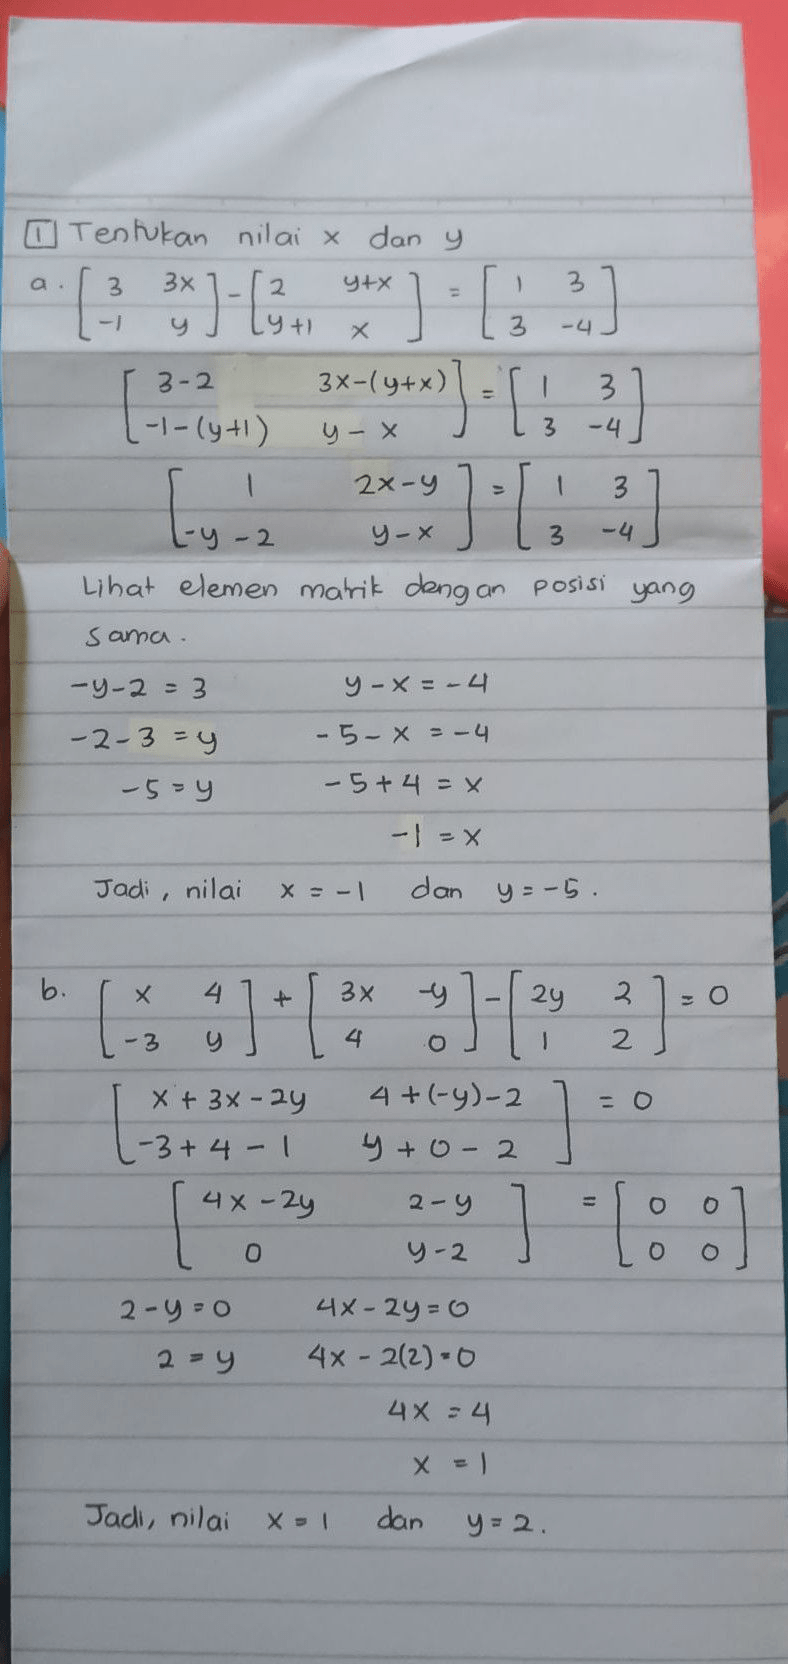 1 Tentukan nilai x dan y
a. [ 3 3x ] - [ 2 y+x ] = [ 1 3 ]
[ -1 y ] [ y+1 x ] [ 3 -4 ]
[ 3-2 3x-(y+x) ] = [ 1 3 ]
[ -1-(y+1) y-x ] [ 3 -4 ]
[ 1 2x-y ] = [ 1 3 ]
[ -y-2 y-x ] [ 3 -4 ]
Lihat elemen matrik dengan posisi yang
sama.
-y-2 = 3 y-x = -4
-2-3 = y -5-x = -4
-5 = y -5+4 = x
-1 = x
Jadi, nilai x = -1 dan y = -5.
b. [ x 4 ] + [ 3x -y ] - [ 2y 2 ] = 0
[ -3 y ] [ 4 0 ] [ 1 2 ]
[ x+3x-2y 4+(-y)-2 ] = 0
[ -3+4-1 y+0-2 ]
[ 4x-2y 2-y ] = [ 0 0 ]
[ 0 y-2 ] [ 0 0 ]
2-y=0 4x-2y=0
2=y 4x-2(2)=0
4x=4
x=1
Jadi, nilai x=1 dan y=2.